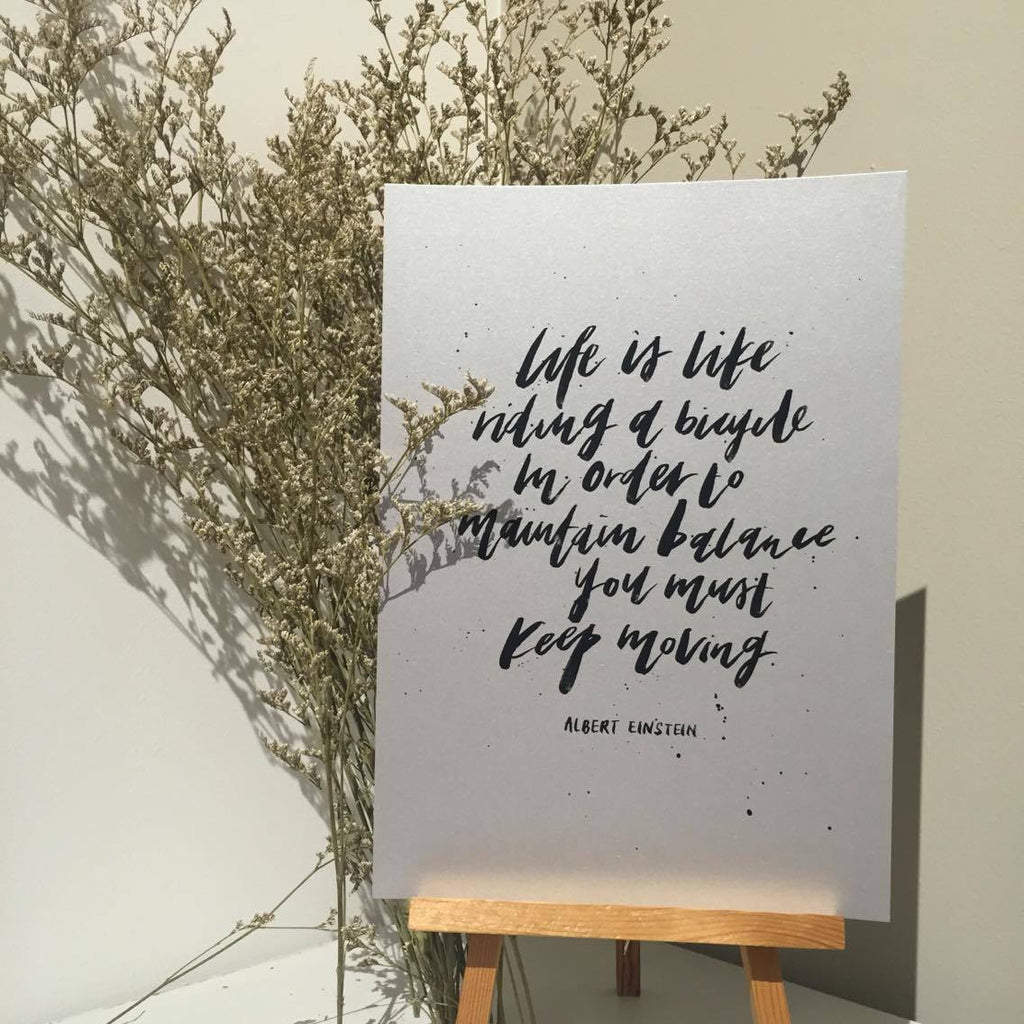 Life is like
riding a bicycle
In order to
maintain balance
you must
Keep moving.
ALBERT EINSTEIN